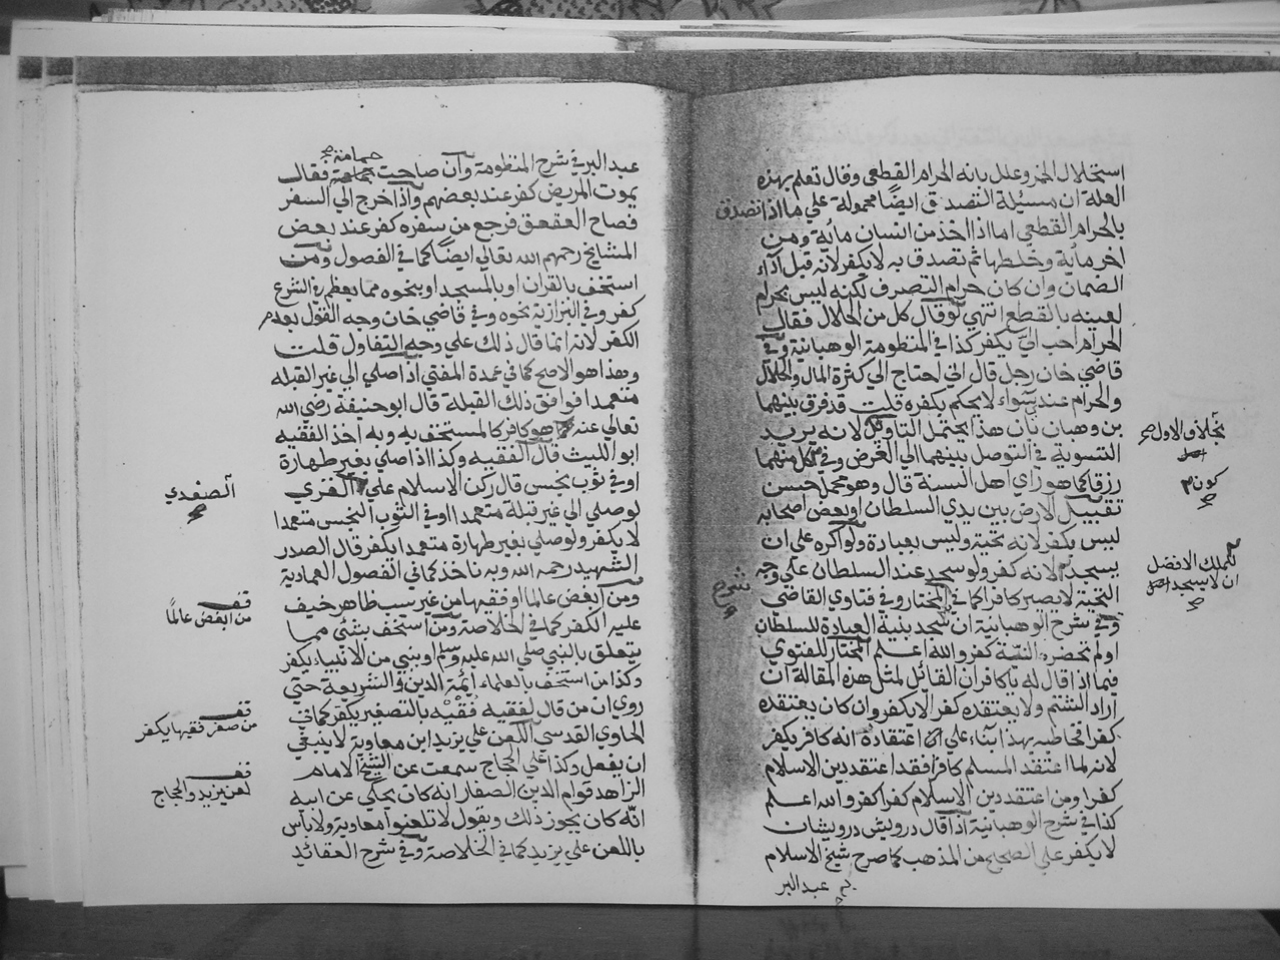 استحلال الخمر وعلل بانه الحرام القطعي وقال تعلم بهذه
العلة ان مسئلة التصدق ايضا محمولة علي ما اذا تصدق
بالحرام القطعي اما اذا اخذ من انسان مائة ومن
اخر مائة وخلطها ثم تصدق به لا يكفر لانه قبل اداء
الضمان وان كان حرام التصرف لكنه ليس بحرام
لعينه بالقطع انتهي لو قال كل من الحلال فقال
الحرام احب الي يكفر كذا في المنظومة الوهبانية وفي
قاضي خان رجل قال اني احتاج الي كثرة المال والحلال
والحرام عندي سواء لا يحكم بكفره قلت قد فرق بينهما
بن وهبان بان هذا يحتمل التاويل لانه يريد
التسوية في التوصل بينهما الي الغرض وفي كل منهما
رزقا كما هو راي اهل السنة قال وهو محمل حسن
تقبيل الارض بين يدي السلطان او بعض اصحابه
ليس بكفر لانه تحية وليس بعبادة ولو اكره علي ان
يسجد لانه كفر ولو سجد عند السلطان علي وجه
التحية لا يصير كافرا كما في المختار وفي فتاوي القاضي
وفي شرح الوهبانية ان سجد بنية العبادة للسلطان
او لم تحضره النية كفر والله اعلم المختار للفتوي
فيما اذا قال له يا كافر ان القائل لمثل هذه المقالة ان
اراد الشتم ولا يعتقده كفرا لا يكفر وان كان يعتقده
كفرا فخاطبه بهذا بناء علي اعتقاده انه كافر يكفر
لانه لما اعتقد المسلم كافرا فقد اعتقد دين الاسلام
كفرا ومن اعتقد دين الاسلام كفرا كفر والله اعلم
كذا في شرح الوهبانية اذا قال درويش درويشان
لا يكفر علي الصحيح من المذهب كما صرح شيخ الاسلام
عبد البر
بخلاف الاول صح
اصل
كون
للملك الافضل
ان لا يسجد
شرح
حمامة صح
عبد البر في شرح المنظومة وان صاحت فقال
يموت المريض كفر عند بعضهم واذا خرج الي السفر
فصاح العقعق فرجع من سفره كفر عند بعض
المشايخ رحمهم الله تعالي ايضا كما في الفصول ومن
استخف بالقران او بالمسجد او بنحوه مما يعظم في الشرع
كفر وفي البزازية نحوه وفي قاضي خان وجه القول بعدم
الكفر لانه انما قال ذلك علي وجه التفاول قلت
وهذا هو الاصح كما في عمدة المفتي اذا صلي الي غير القبلة
متعمدا فوافق ذلك القبلة قال ابو حنيفة رضي الله
تعالي عنه هو كافر كالمستخف به وبه اخذ الفقيه
ابو الليث قال الفقيه وكذا اذا صلي بغير طهارة
او في ثوب نجس قال ركن الاسلام علي
لو صلي الي غير قبلة متعمدا او في الثوب النجس متعمدا
لا يكفر ولو صلي بغير طهارة متعمدا يكفر قال الصدر
الشهيد رحمه الله وبه ناخذ كما في الفصول العمادية
ومن ابغض عالما او فقيها من غير سبب ظاهر خيف
عليه الكفر كما في الخلاصة ومن استخف بشئي مما
يتعلق بالنبي صلي الله عليه وسلم او بنبي من الانبياء يكفر
وكذا من استخف بالعلماء ائمة الدين والشريعة حتي
روي ان من قال لفقيه فُقَيْه بالتصغير يكفر كما في
الحاوي القدسي اللعن علي يزيد ابن معاوية لا ينبغي
ان يفعل وكذا علي الحجاج سمعت عن الشيخ الامام
الزاهد قوام الدين الصفار انه كان يحكي عن ابيه
انه كان يجوز ذلك ويقول لا تلعنوا معاوية ولا باس
باللعن علي يزيد كما في الخلاصة وفي شرح العقائد
الصفدي
قف
من ابغض عالما
قف
من صغر فقيها يكفر
قف
لعن يزيد والحجاج